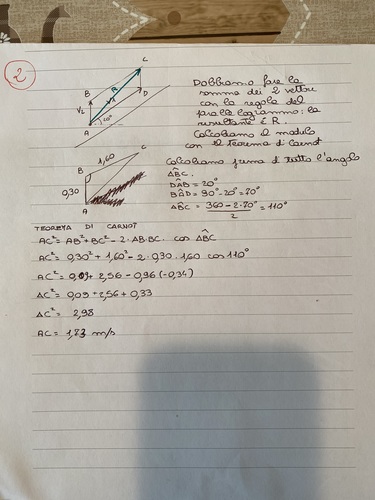 2
C
B
R
V₂
V₁
D
A
20°
Dobbiamo fare la
somma dei 2 vettori
con la regola del
parallelogrammo: la
risultante è R.
Calcoliamo il modulo
con il Teorema di Carnot
1,60
C
B
0,30
A
Calcoliamo prima di tutto l'angolo
ABC.
DAB = 20°
BAD = 90° - 20° = 70°
ABC = 360 - 2·70° / 2 = 110°
TEOREMA DI CARNOT
AC² = AB² + BC² - 2·AB·BC· cos ABC
AC² = 0,30² + 1,60² - 2·0,30·1,60 cos 110°
AC² = 0,09 + 2,56 - 0,96 (-0,34)
AC² = 0,09 + 2,56 + 0,33
AC² = 2,98
AC = 1,73 m/s